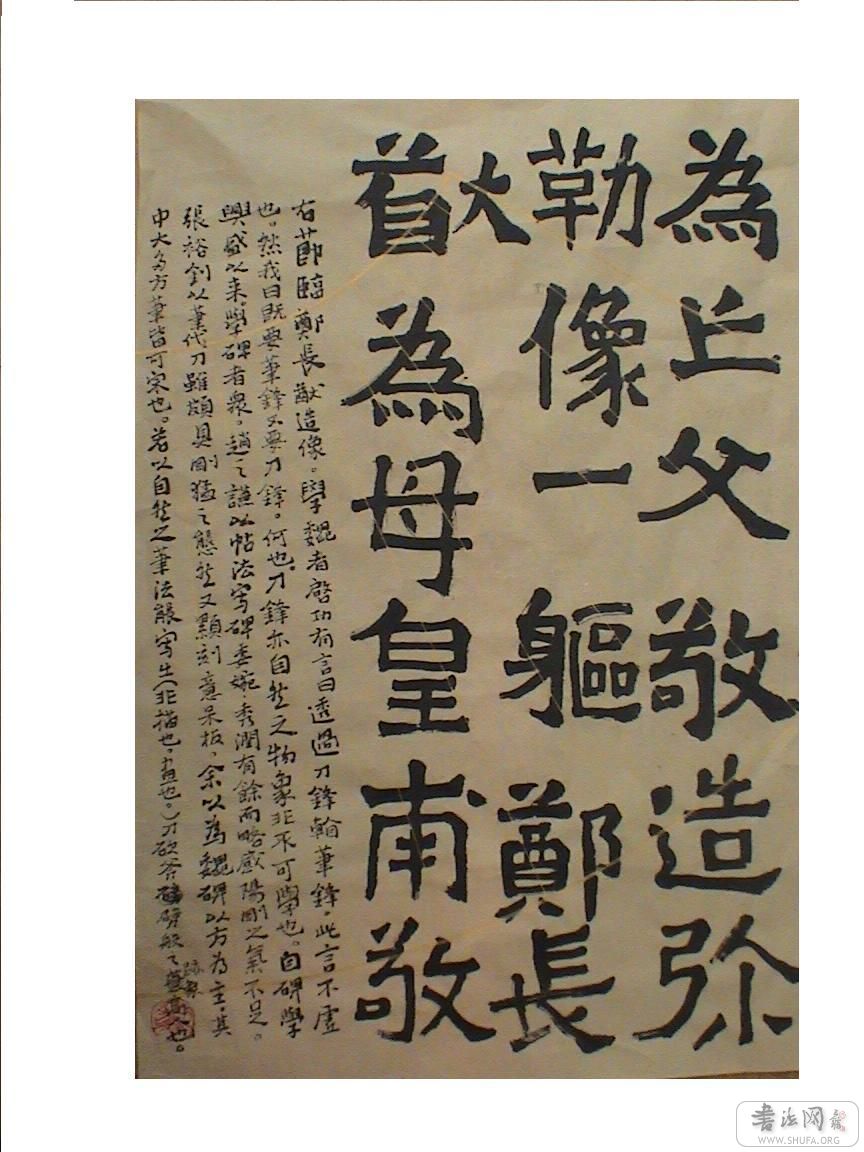 為亡父敬造弥
勒像一軀鄭長
猷為母皇甫敬
大
右節臨鄭長猷造像。學魏者啓功有言曰透過刀鋒輪筆鋒。此言不虛
也。然我曰既要筆鋒又要刀鋒。何也。刀鋒亦自然之物象非不可學也。自碑學
興盛以来。學碑者衆。趙之謙以帖法寫碑委婉秀潤有餘而略感陽剛之氣不足。
張裕釗以筆代刀雖頗具剛猛之態然又顯刻意呆板，余以為魏碑以方為主，其
中大多方筆皆可宗也。若以自然之筆法能寫出（非描也，畫也。）刀砍斧劈般之
也。
書法网
WWW.SHUFA.ORG